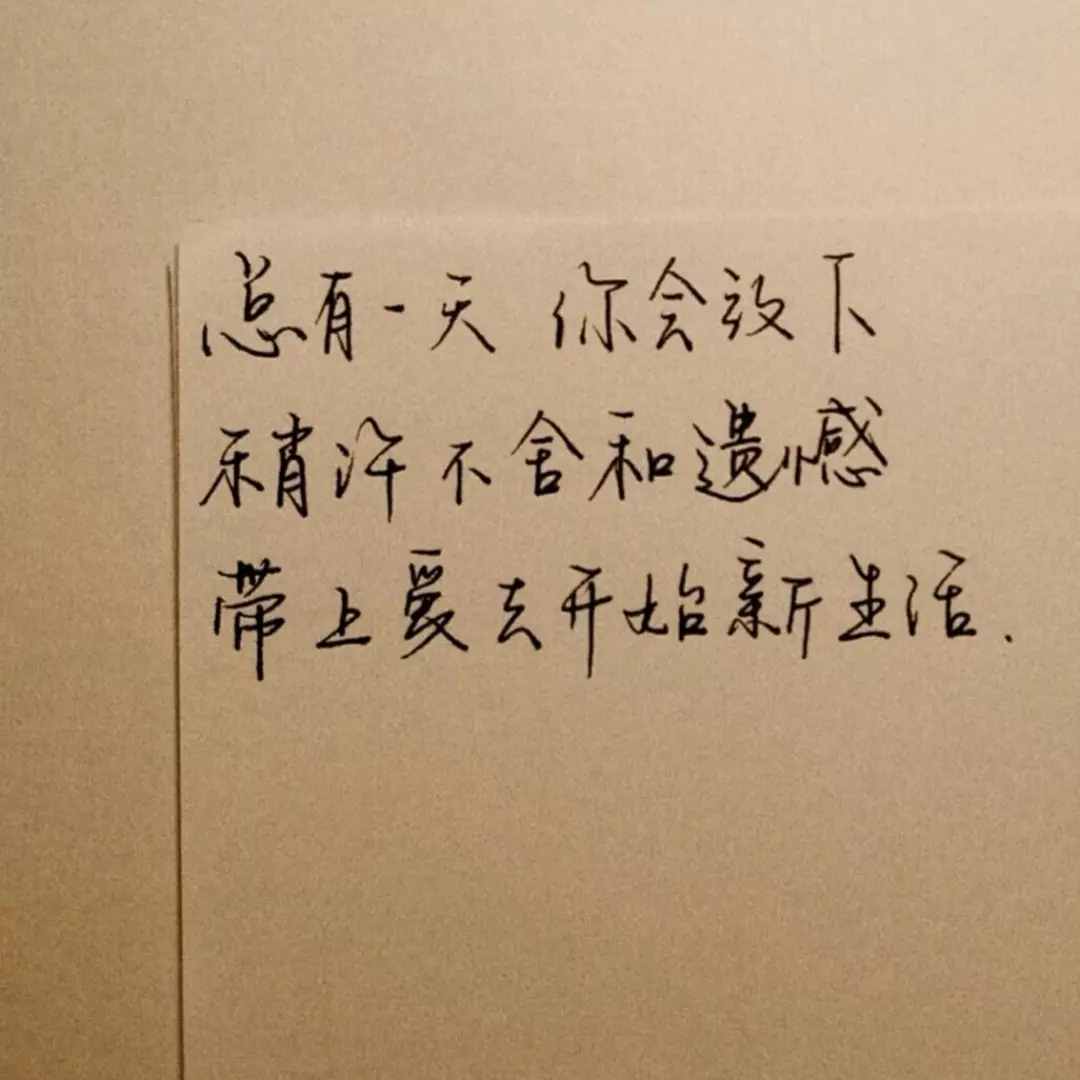 总有一天 你会放下
稍许不舍和遗憾
带上爱去开始新生活.